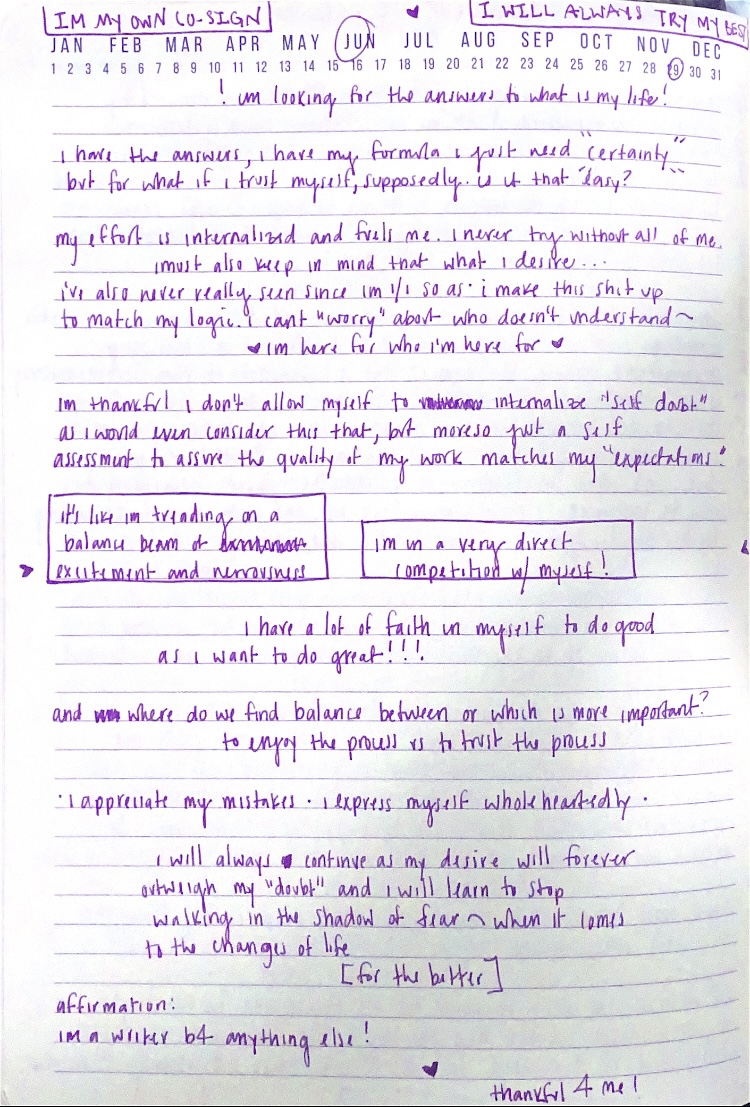 IM MY OWN CO-SIGN
I WILL ALWAYS TRY MY BEST
JAN FEB MAR APR MAY JUN JUL AUG SEP OCT NOV DEC
1 2 3 4 5 6 7 8 9 10 11 12 13 14 15 16 17 18 19 20 21 22 23 24 25 26 27 28 29 30 31
! im looking for the answers to what is my life!
i have the answers, i have my formula i just need "certainty"
but for what if i trust myself, supposedly. is it that "easy?"
my effort is internalized and fuels me. i never try without all of me.
i must also keep in mind that what i desire...
i've also never really seen since im 1/1 so as · i make this shit up
to match my logic. i cant "worry" about who doesn't understand~
♥ im here for who i'm here for ♥
im thankful i don't allow myself to internalize "self doubt"
as i would even consider this that, but moreso just a self
assessment to assure the quality of my work matches my "expectations."
it's like im treading on a
balance beam of
excitement and nervousness
im in a very direct
competition w/ myself!
i have a lot of faith in myself to do good
as i want to do great!!!
and where do we find balance between or which is more important?
to enjoy the process vs to trust the process
· i appreciate my mistakes · i express myself wholeheartedly ·
i will always continue as my desire will forever
outweigh my "doubt" and i will learn to stop
walking in the shadow of fear ~ when it comes
to the changes of life
[for the better]
affirmation:
im a writer b4 anything else!
thankful 4 me!